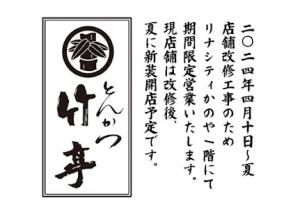 二〇二四年四月十日～夏
店舗改修工事のため
リナシティかのや一階にて
期間限定営業いたします。
現店舗は改修後、
夏に新装開店予定です。
とんかつ
竹亭